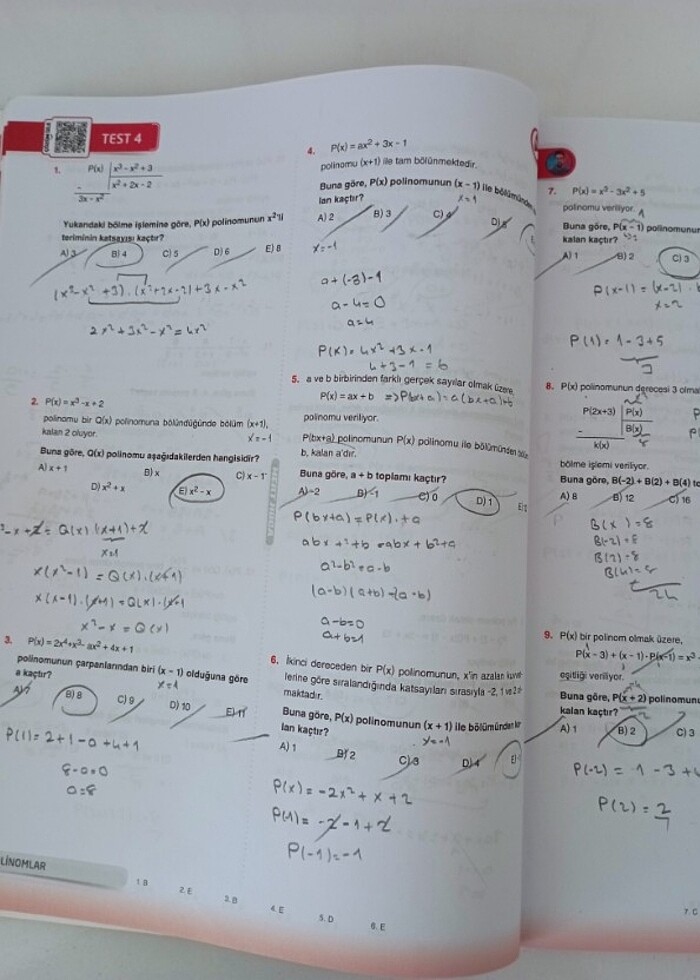 TEST 4
1.
P(x) | x³ - x² + 3
x² + 2x - 2
3x - x²
Yukarıdaki bölme işlemine göre, P(x) polinomunun x²'li
teriminin katsayısı kaçtır?
A) 3 B) 4 C) 5 D) 6 E) 8
2x² + 3x² - x² = 4x²
2. P(x) = x³ - x + 2
polinomu bir Q(x) polinomuna bölündüğünde bölüm (x+1),
kalan 2 oluyor.
x = -1
Buna göre, Q(x) polinomu aşağıdakilerden hangisidir?
A) x + 1 B) x C) x - 1
D) x² + x E) x² - x
x(x²-1) = Q(x).(x+1)
x(x-1).(x+1) = Q(x).(x+1)
x² - x = Q(x)
3. P(x) = 2x⁴ + x³ - ax² + 4x + 1
polinomunun çarpanlarından biri (x - 1) olduğuna göre
a kaçtır?
x = 1
A) 7 B) 8 C) 9 D) 10 E) 11
P(1) = 2+1-a+4+1
8-a=0
a=8
LİNOMLAR
4. P(x) = ax² + 3x - 1
polinomu (x+1) ile tam bölünmektedir.
Buna göre, P(x) polinomunun (x - 1) ile bölümünden
lan kaçtır?
x=1
A) 2 B) 3 C) 4 D) 5
x=-1
a+(-3)-1
a-4=0
a=4
P(x) = 4x² + 3x - 1
4+3-1 = 6
5. a ve b birbirinden farklı gerçek sayılar olmak üzere,
P(x) = ax + b => P(bx+a) = a(bx+a)+b
polinomu veriliyor.
P(bx+a) polinomunun P(x) polinomu ile bölümünden
b, kalan a'dır.
Buna göre, a + b toplamı kaçtır?
A) -2 B) -1 C) 0 D) 1
a²-b²=a-b
(a-b)(a+b)=(a-b)
a-b=0
a+b=1
6. İkinci dereceden bir P(x) polinomunun, x'in azalan kuvvet
lerine göre sıralandığında katsayıları sırasıyla -2, 1 ve 2
maktadır.
Buna göre, P(x) polinomunun (x + 1) ile bölümünden
lan kaçtır?
x=-1
A) 1 B) 2 C) 3 D) 4 E)
P(x) = -2x² + x + 2
P(-1) = -2 - 1 + 2
P(-1) = -1
1. B 2. E 3. B 4. E 5. D 6. E
7. P(x) = x³ - 3x² + 5
polinomu veriliyor.
Buna göre, P(x - 1) polinomunun
kalan kaçtır?
A) 1 B) 2 C) 3
x=2
P(1) = 1 - 3 + 5
3
8. P(x) polinomunun derecesi 3 olma
P(2x+3) | P(x)
B(x)
k(x)
bölme işlemi veriliyor.
Buna göre, B(-2) + B(2) + B(4) to
A) 8 B) 12 C) 16
B(x) = 8
B(-2) = 8
B(2) = 8
B(4) = 8
24
9. P(x) bir polinom olmak üzere,
P(x - 3) + (x - 1) · P(x-1) = x³ -
eşitliği veriliyor.
Buna göre, P(x + 2) polinomunu
kalan kaçtır?
A) 1 B) 2 C) 3
P(-2) = 1 - 3 +
P(2) = 2
7. C